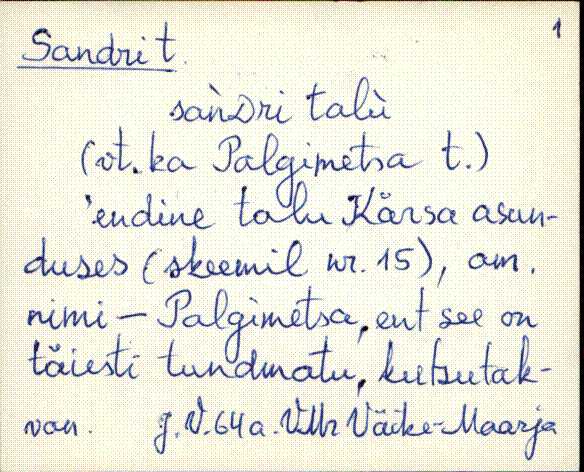 1
Sandri t.
sànDri talù
(vt. ka Palgimetsa t.)
'endine talu Kärsa asun-
duses (skeemil nr. 15), am.
nimi – Palgimetsa, ent see on
täiesti tundmatu, kutsutak-
van. J.V. 64 a. VMr Väike-Maarja